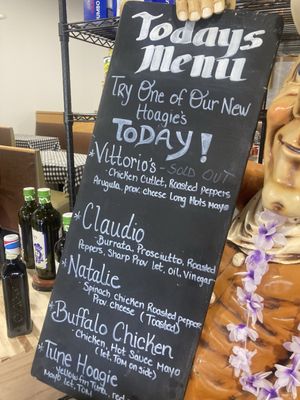 Todays
Menu
Try One of Our New
Hoagie's
TODAY!
* Vittorio's - SOLD OUT
Chicken Cutlet, Roasted peppers
Arugula, prov. cheese Long Hots Mayo
* Claudio
Burrata, Prosciutto, Roasted
Peppers, Sharp Prov let, oil, Vinegar
* Natalie
Spinach chicken Roasted peppers
Prov cheese (Toasted)
* Buffalo Chicken
Chicken, Hot Sauce Mayo
(let. TOM on side)
* Tune Hoagie
yellow fin Tuna, red
Mayo let, TOM